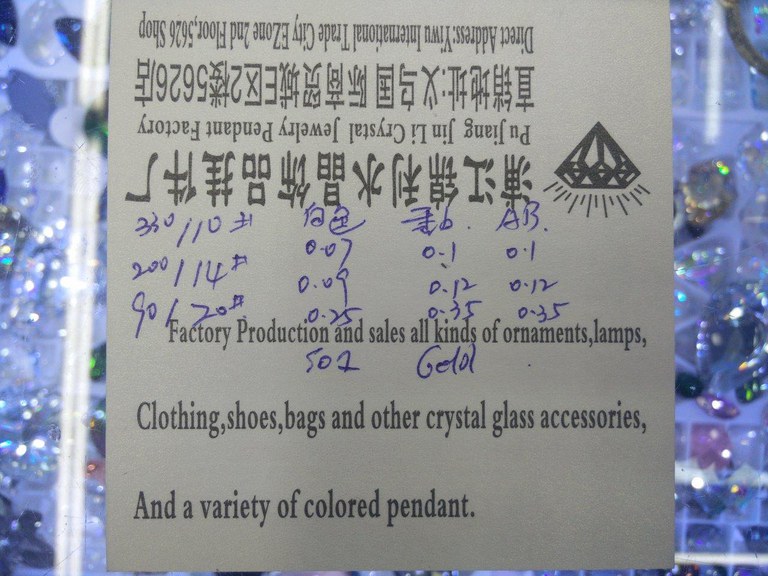 浦江锦利水晶饰品挂件厂
Pu Jiang Jin Li Crystal Jewelry Pendant Factory
直销地址:义乌国际商贸城E区2楼5626店
Direct Address:Yiwu International Trade City EZone 2nd Floor,5626 Shop
330/10# 白色 AB.
0.07 0.1 0.1
200/14# 0.09 0.12 0.12
90/20# 0.25 0.35 0.35
Factory Production and sales all kinds of ornaments,lamps,
Gold
Clothing,shoes,bags and other crystal glass accessories,
And a variety of colored pendant.